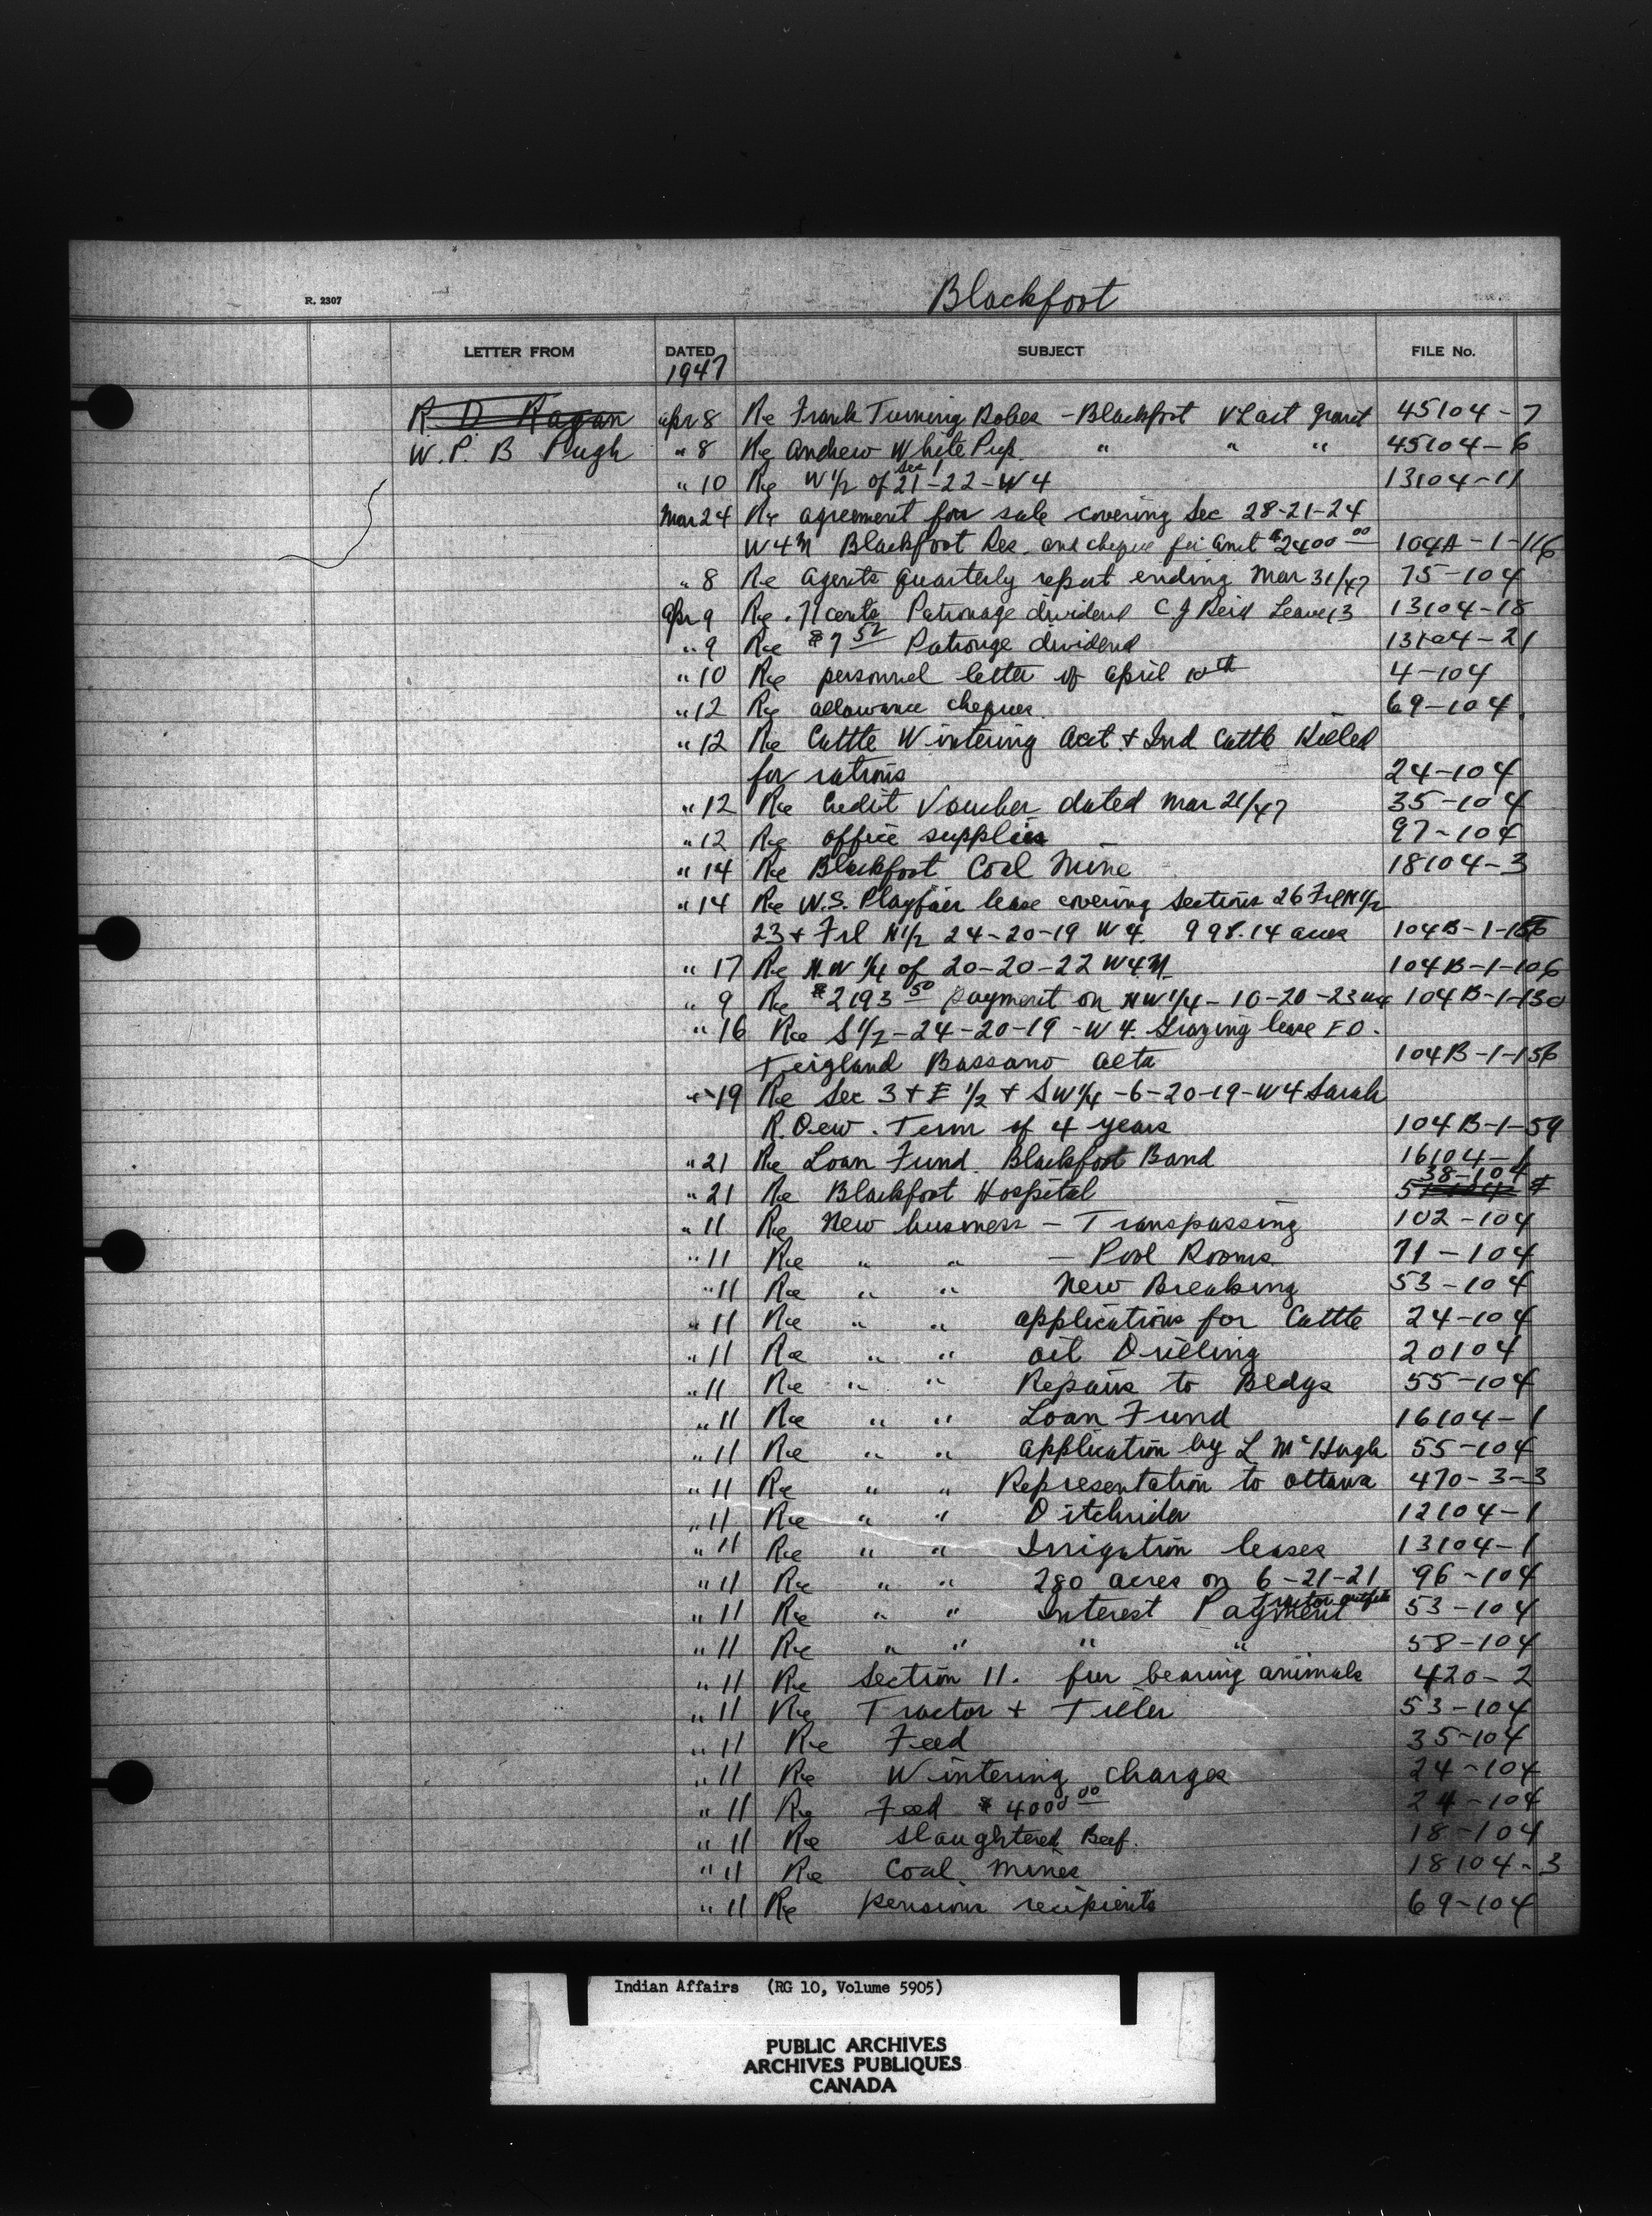 R. 2307
Blackfoot
LETTER FROM DATED SUBJECT FILE No.
1947
R D Ragan apr 8 Re Frank Turning Robes - Blackfoot V Last Grant 45104-7
W. P. B Pugh " 8 Re Andrew White Pup. " " " 45104-6
" 10 Re W 1/2 of Sec 1 21-22-W4 13104-11
Mar 24 Re agreement for sale covering Sec 28-21-24
W4M Blackfoot Res. and cheque for Amt $2400 00 104A-1-116
" 8 Re Agents Quarterly report ending Mar 31/47 75-104
Apr 9 Re .71 cents Patronage dividend C J Reid 13104-18
" 9 Re $7 52 Patronge dividend 13104-21
" 10 Re personnel letter of April 10th 4-104
" 12 Re allowance cheques 69-104
" 12 Re Cattle Wintering Acct + Ind Cattle Killed
for rations 24-104
" 12 Re Credit Voucher dated Mar 21/47 35-104
" 12 Re office supplies 97-104
" 14 Re Blackfoot Coal Mine 18104-3
" 14 Re W.S. Playfair lease covering Sections 26 Frl N 1/2
23 + Frl N 1/2 24-20-19 W4. 998.14 acres 104B-1-156
" 17 Re N.W 1/4 of 20-20-22 W4M 104B-1-106
" 9 Re $2193 50 payment on NW 1/4 - 10-20-23 W4 104B-1-130
" 16 Re S 1/2 - 24-20-19 - W4. Grazing lease F O.
Teigland Bassano Alta 104B-1-156
" 19 Re Sec 3 + E 1/2 + SW 1/4 - 6-20-19-W4 Sarah
R. Dew. Term of 4 years 104B-1-59
" 21 Re Loan Fund. Blackfoot Band 16104-1
" 21 Re Blackfoot Hospital 38-104
" 11 Re New business - Transpassing 102-104
" 11 Re " " - Pool Rooms 71-104
" 11 Re " " New Breaking 53-104
" 11 Re " " applications for Cattle 24-104
" 11 Re " " oil Drilling 20104
" 11 Re " " Repairs to Bldgs 55-104
" 11 Re " " Loan Fund 16104-1
" 11 Re " " application by L McHugh 55-104
" 11 Re " " Representation to Ottawa 470-3-3
" 11 Re " " Ditchrider 12104-1
" 11 Re " " Irrigation leases 13104-1
" 11 Re " " 280 acres on 6-21-21 96-104
" 11 Re " " Interest Payment Tractor outfits 53-104
" 11 Re " " " " 58-104
" 11 Re Section 11. fur bearing animals 420-2
" 11 Re Tractor + Tiller 53-104
" 11 Re Feed 35-104
" 11 Re Wintering charges 24-104
" 11 Re Feed $4000 00 24-104
" 11 Re slaughtered Beef. 18-104
" 11 Re Coal Mines 18104-3
" 11 Re pension recipients 69-104
Indian Affairs (RG 10, Volume 5905)
PUBLIC ARCHIVES
ARCHIVES PUBLIQUES
CANADA